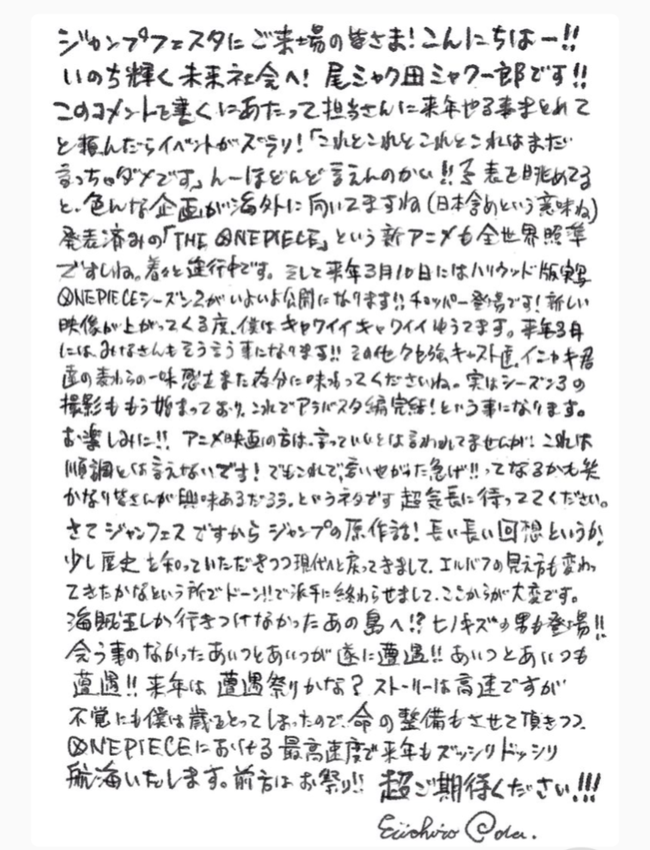 ジャンプフェスタにご来場の皆さま!こんにちはー!!
いのち輝く未来社会へ!尾ミャク田ミャクー郎です!!
このコメントを書くにあたって担当さんに来年やる事まとめて
と頼んだらイベントがズラリ!「これとこれとこれとこれはまだ
言っちゃダメです」んーほとんど言えんのかい!!予表を眺めてる
と、色んな企画が海外に向いてますね(日本含めという意味ね)
発表済みの「THE ONE PIECE」という新アニメも全世界照準
ですしね。着々と進行中です。そして来年3月10日にはハリウッド版実写
ONE PIECEシーズン2がいよいよ公開になります!!チョッパー登場です!新しい
映像が上がってくる度、僕はキャワイイキャワイイゆうてます。来年3月
には、みなさんもそう言う事になります!!その他クセ強キャスト達、イニャキ君
達の麦わらの一味感もまた存分に味わってくださいね。実はシーズン3の
撮影ももう始まっており、これでアラバスタ編完結!という事になります。
お楽しみに!!アニメ映画の方は、言っていいとは言われてませんが、これは
順調とは言えないです!でもこれで、言いやがった急げ!!ってなるかも笑
かなり皆さんが興味あるだろう、というネタです超気長に待っててください。
さてジャンフェスですからジャンプの原作話!長い長い回想というか、
少し歴史を知っていただきつつ現代へと戻ってきまして、エルバフの見え方も変わっ
てきたかなという所でドーン!!で派手に終わらせまして、ここからが大変です。
海賊王しか行きつけなかったあの島へ!?ヒノキズの男も登場!!
会う事のなかったあいつとあいつが遂に遭遇!!あいつとあいつも
遭遇!!来年は遭遇祭りかな?ストーリーは高速ですが
不覚にも僕は歳をとってしまったので、命の整備もさせて頂きつつ、
ONE PIECEにおける最高速度で来年もズッシリドッシリ
航海いたします。前方はお祭り!!超ご期待ください!!!
Eiichiro Oda.